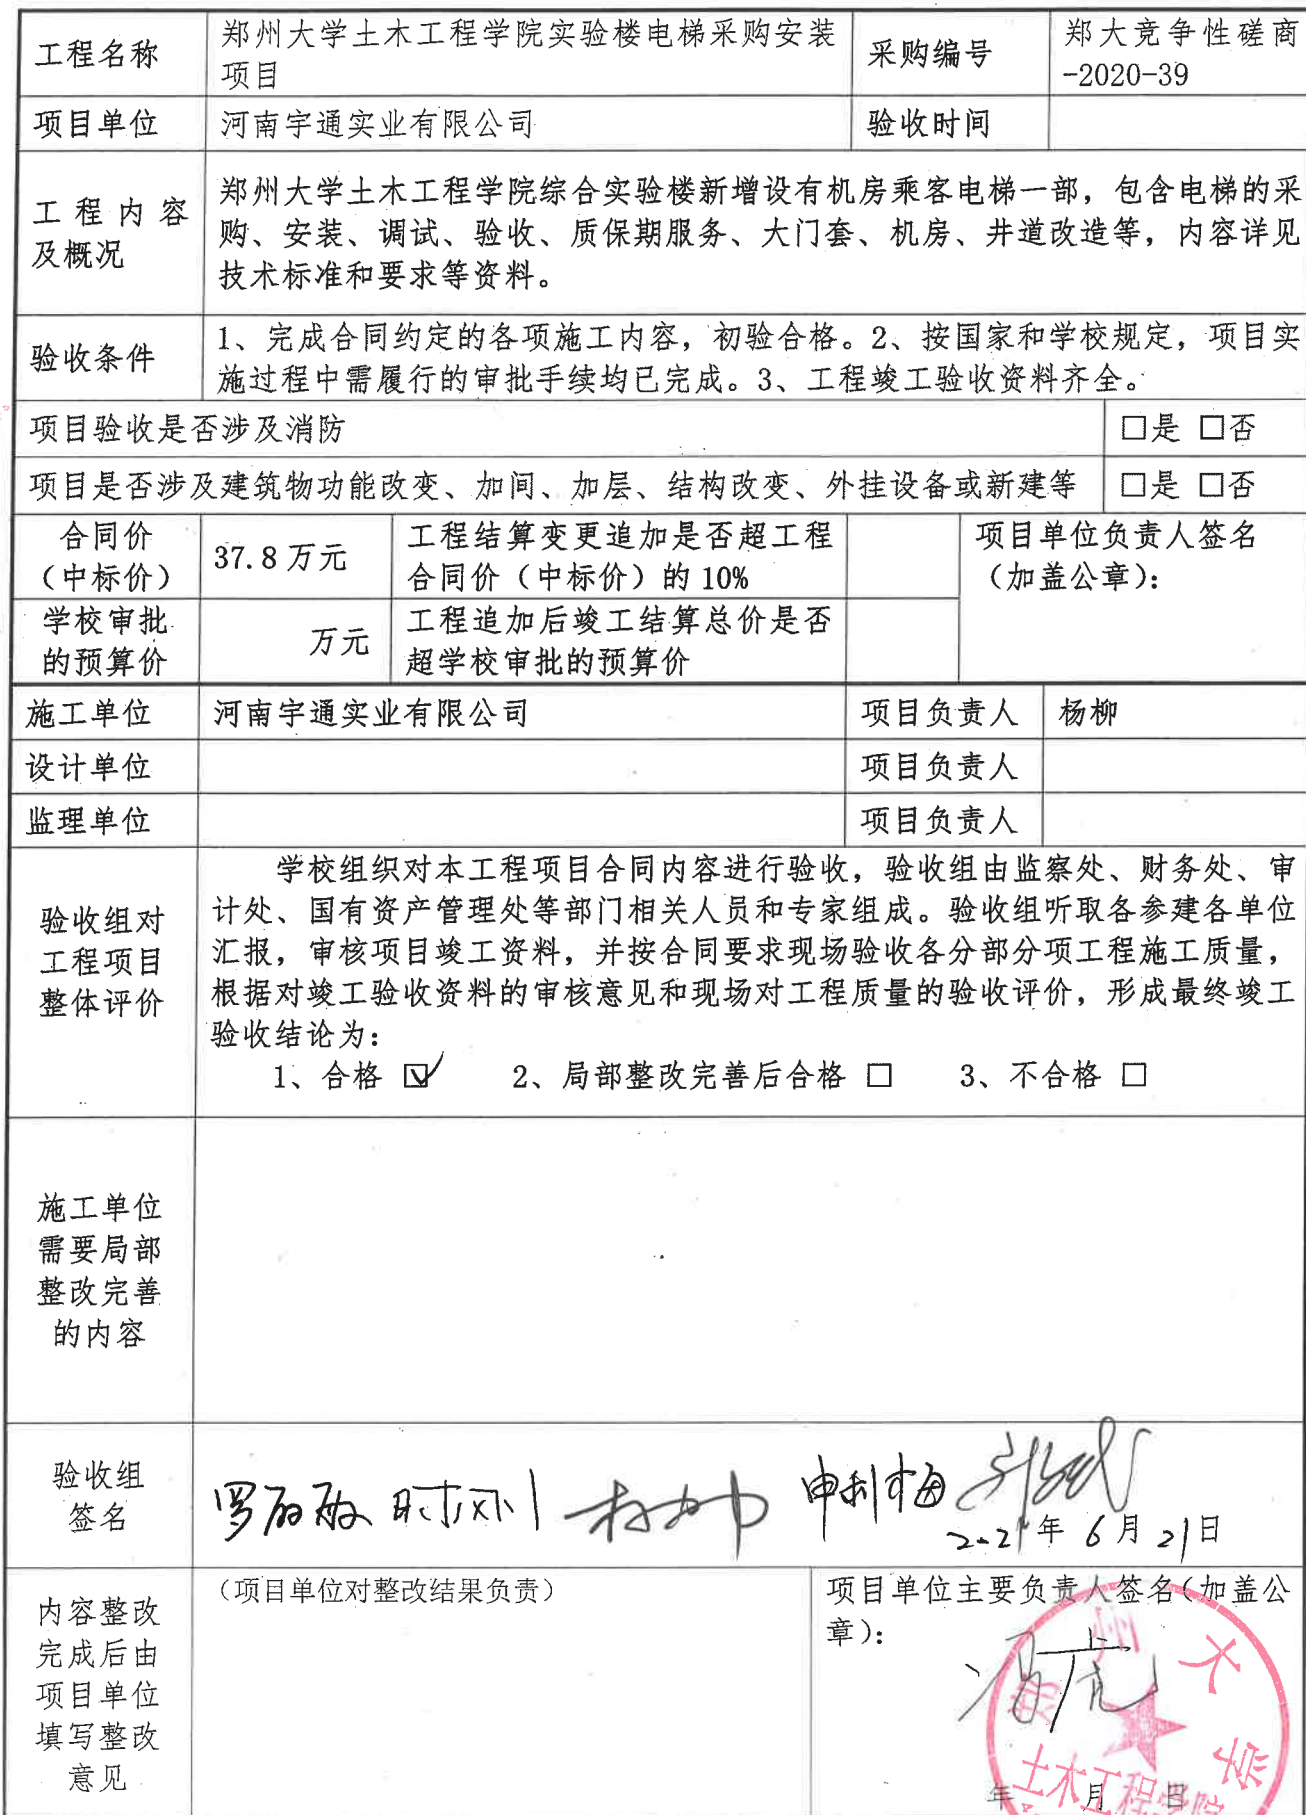 工程名称
郑州大学土木工程学院实验楼电梯采购安装
项目
采购编号
郑大竞争性磋商
-2020-39
项目单位
河南宇通实业有限公司
验收时间
工程内容
及概况
郑州大学土木工程学院综合实验楼新增设有机房乘客电梯一部，包含电梯的采
购、安装、调试、验收、质保期服务、大门套、机房、井道改造等，内容详见
技术标准和要求等资料。
验收条件
1、完成合同约定的各项施工内容，初验合格。2、按国家和学校规定，项目实
施过程中需履行的审批手续均已完成。3、工程竣工验收资料齐全。
项目验收是否涉及消防
□是 □否
项目是否涉及建筑物功能改变、加间、加层、结构改变、外挂设备或新建等
□是 □否
合同价
（中标价）
37.8万元
工程结算变更追加是否超工程
合同价（中标价）的10%
项目单位负责人签名
（加盖公章）：
学校审批
的预算价
万元
工程追加后竣工结算总价是否
超学校审批的预算价
施工单位
河南宇通实业有限公司
项目负责人
杨柳
设计单位
项目负责人
监理单位
项目负责人
验收组对
工程项目
整体评价
学校组织对本工程项目合同内容进行验收，验收组由监察处、财务处、审
计处、国有资产管理处等部门相关人员和专家组成。验收组听取各参建各单位
汇报，审核项目竣工资料，并按合同要求现场验收各分部分项工程施工质量，
根据对竣工验收资料的审核意见和现场对工程质量的验收评价，形成最终竣工
验收结论为：
1、合格 ☑ 2、局部整改完善后合格 □ 3、不合格 □
施工单位
需要局部
整改完善
的内容
验收组
签名
申利梅
2021年6月21日
内容整改
完成后由
项目单位
填写整改
意见
（项目单位对整改结果负责）
项目单位主要负责人签名（加盖公
章）：
郑州大学
土木工程学院
年 月 日